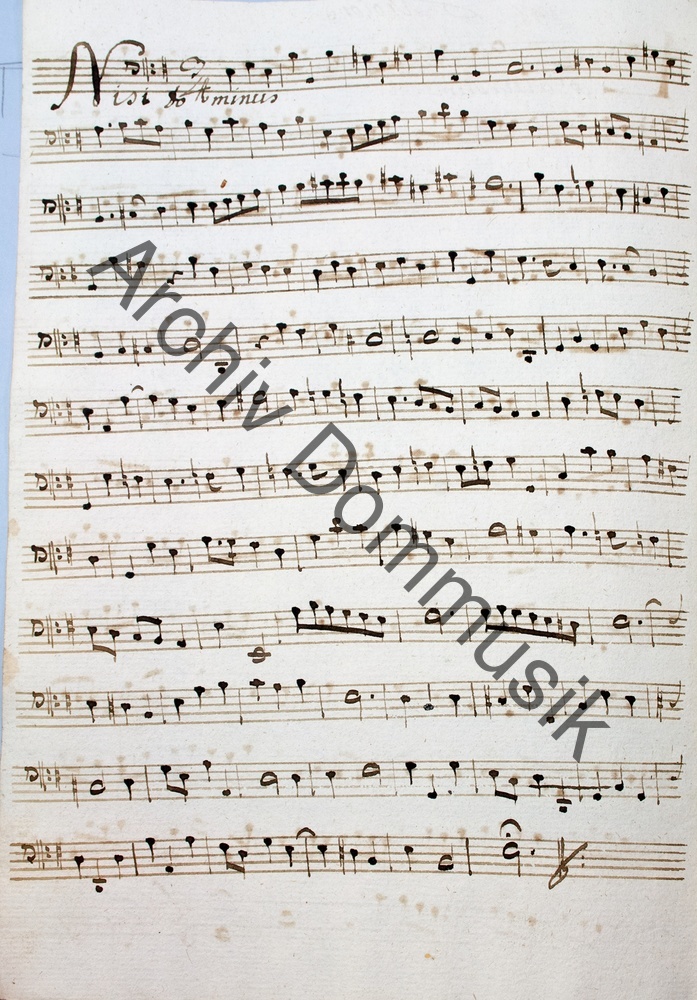 Nisi Dominus
Archiv Dommusik